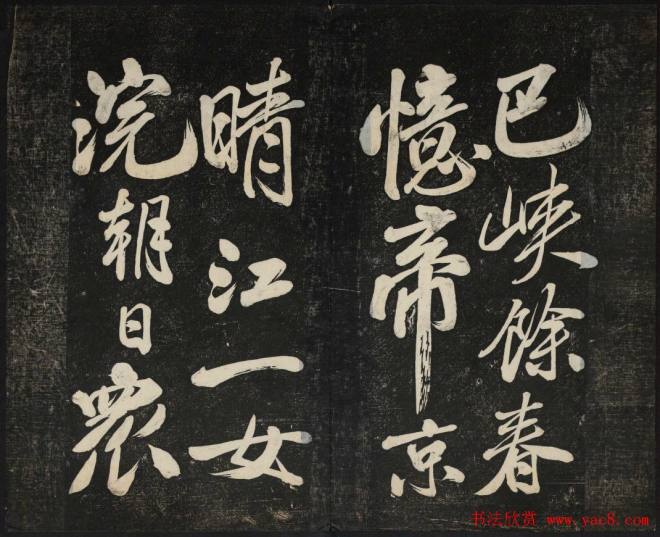 巴峡馀春
憶帝京
晴江一女
浣朝日衆
书法欣赏 www.yac8.com